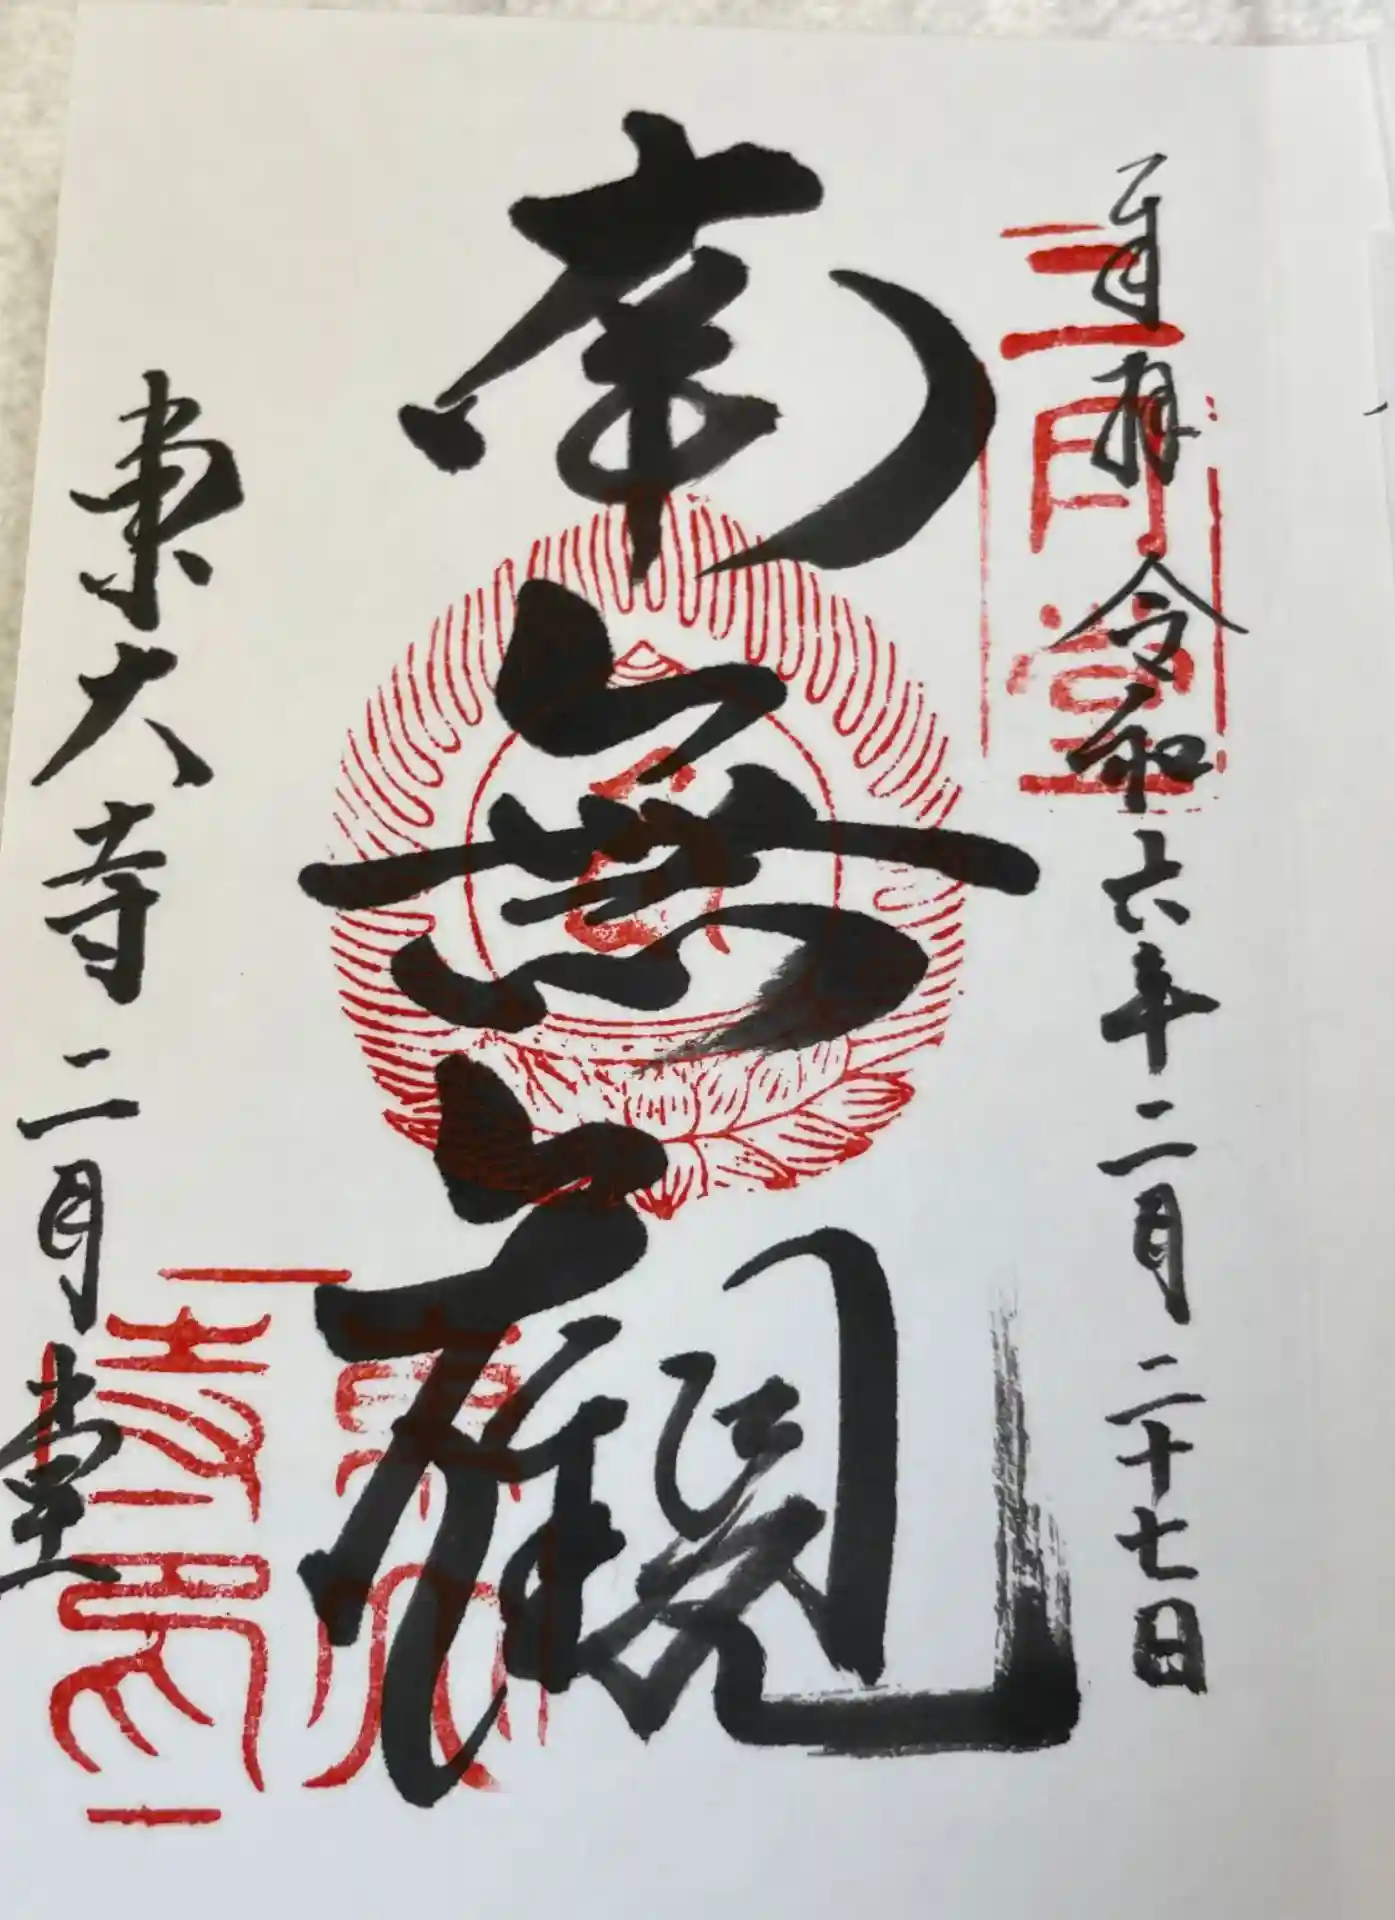 奉拝 令和六年二月二十七日
二月堂
南無観
東大寺二月堂
東大寺印